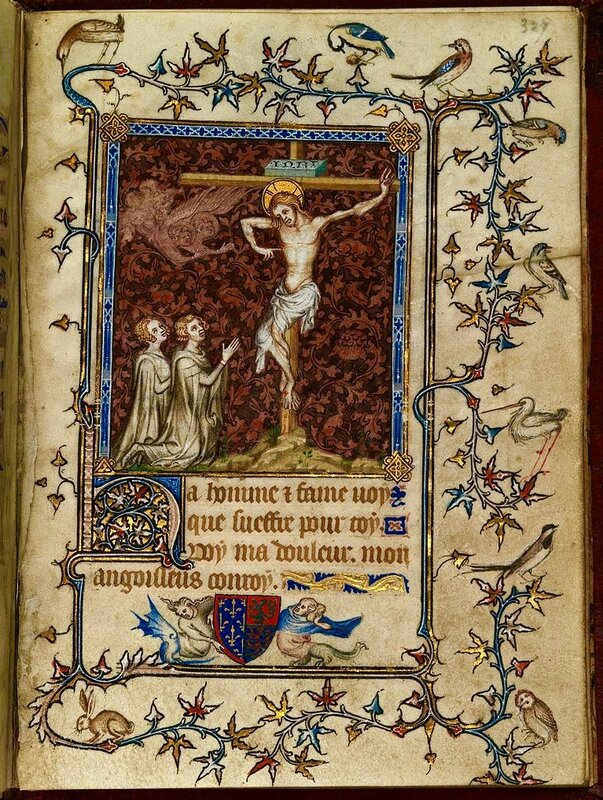 INRI
Ha homme ⁊ fame uoy
que sueffre pour toy.
Uoy ma douleur. mon
angoisseus conroy.